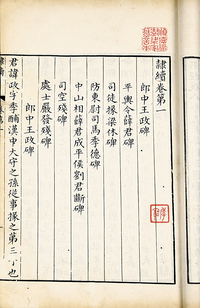 隸續卷第一
郎中王政碑
平輿令薛君碑
司徒掾梁休碑
防東尉司馬季德碑
中山相薛君成平侯劉君斷碑
司空殘碑
處士嚴發殘碑
郎中王政碑
君諱政字季輔漢中大守之孫從事掾之第三子也